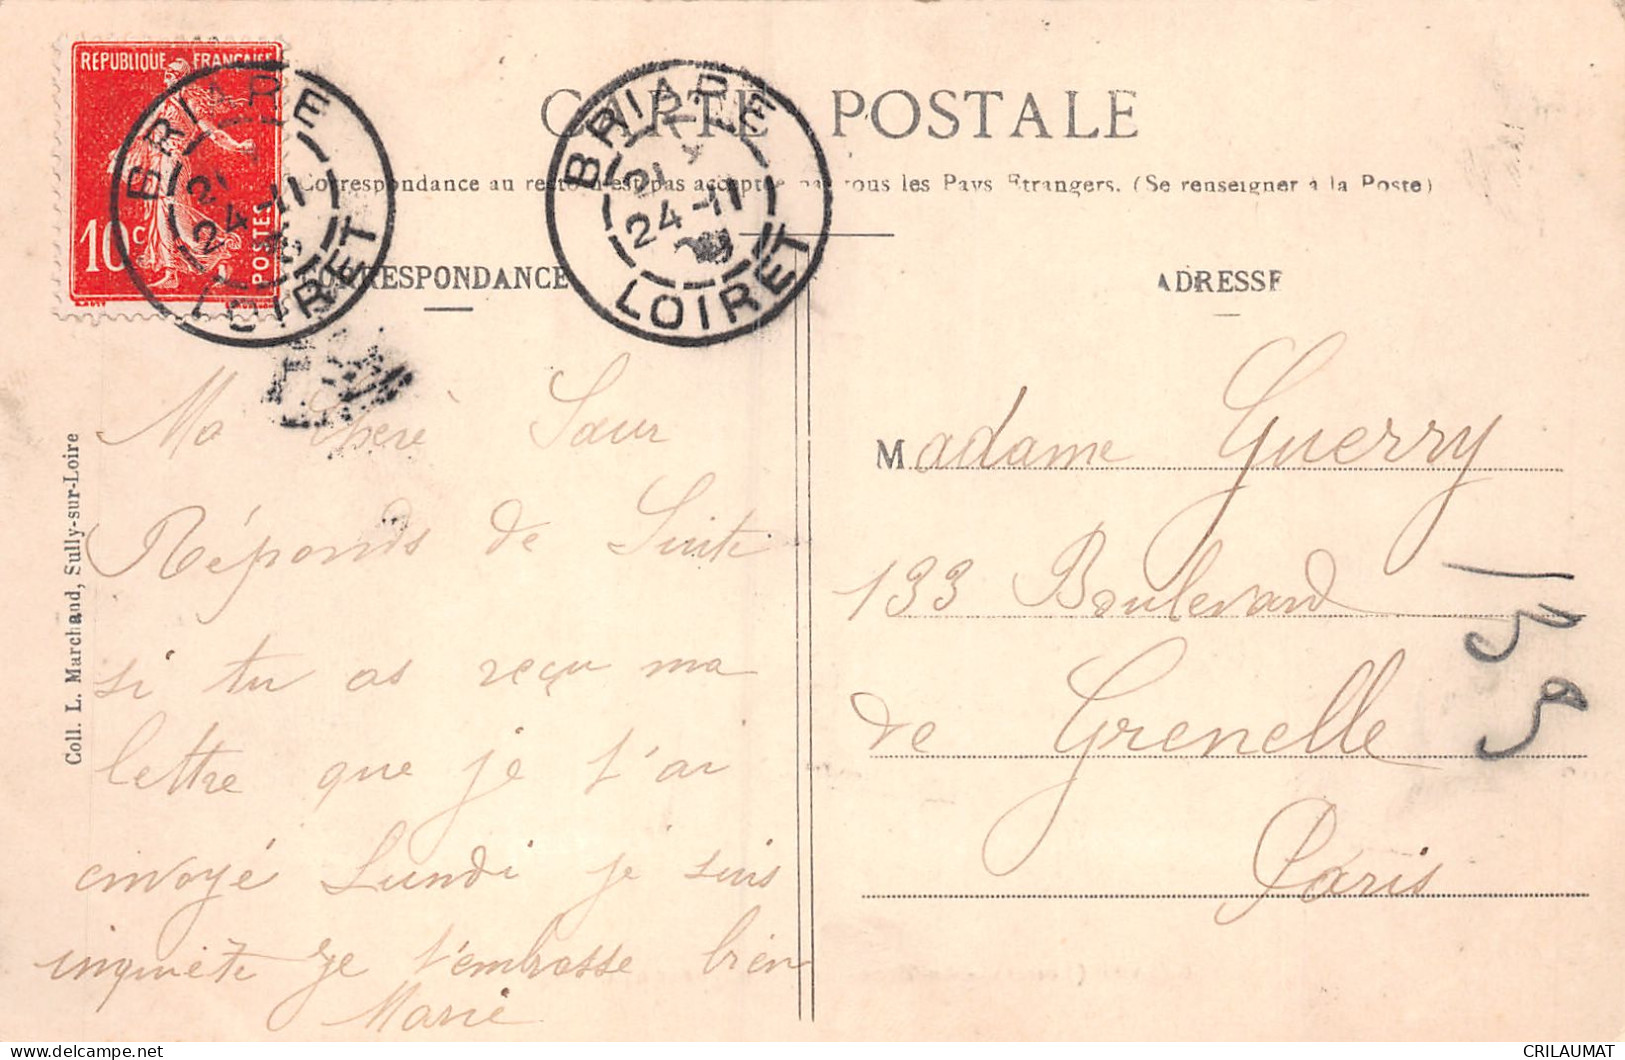 RÉPUBLIQUE FRANÇAISE
10c
POSTES
BRIARE
21
24-11
LOIRET
BRIARE
21
24-11
LOIRET
CARTE POSTALE
Correspondance au recto n'est pas acceptée par tous les Pays Etrangers. (Se renseigner à la Poste)
CORRESPONDANCE
ADRESSE
Ma chère Sœur
Réponds de Suite
si tu as reçu ma
lettre que je t'ai
envoyé Lundi je suis
inquiète je t'embrasse bien
Marie
Madame Guerry
133 Boulevard
de Grenelle
Paris
Coll. L. Marchand, Sully-sur-Loire
CRILAUMAT